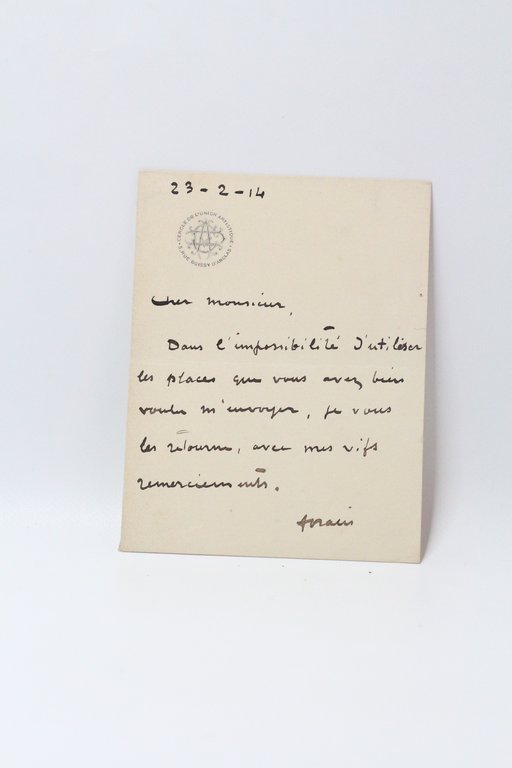 23-2-14
CERCLE DE L'UNION ARTISTIQUE
5 RUE BOISSY D'ANGLAS
Cher monsieur,
Dans l'impossibilité d'utiliser
les places que vous avez bien
voulu m'envoyer, je vous
les retourne, avec mes vifs
remerciements.